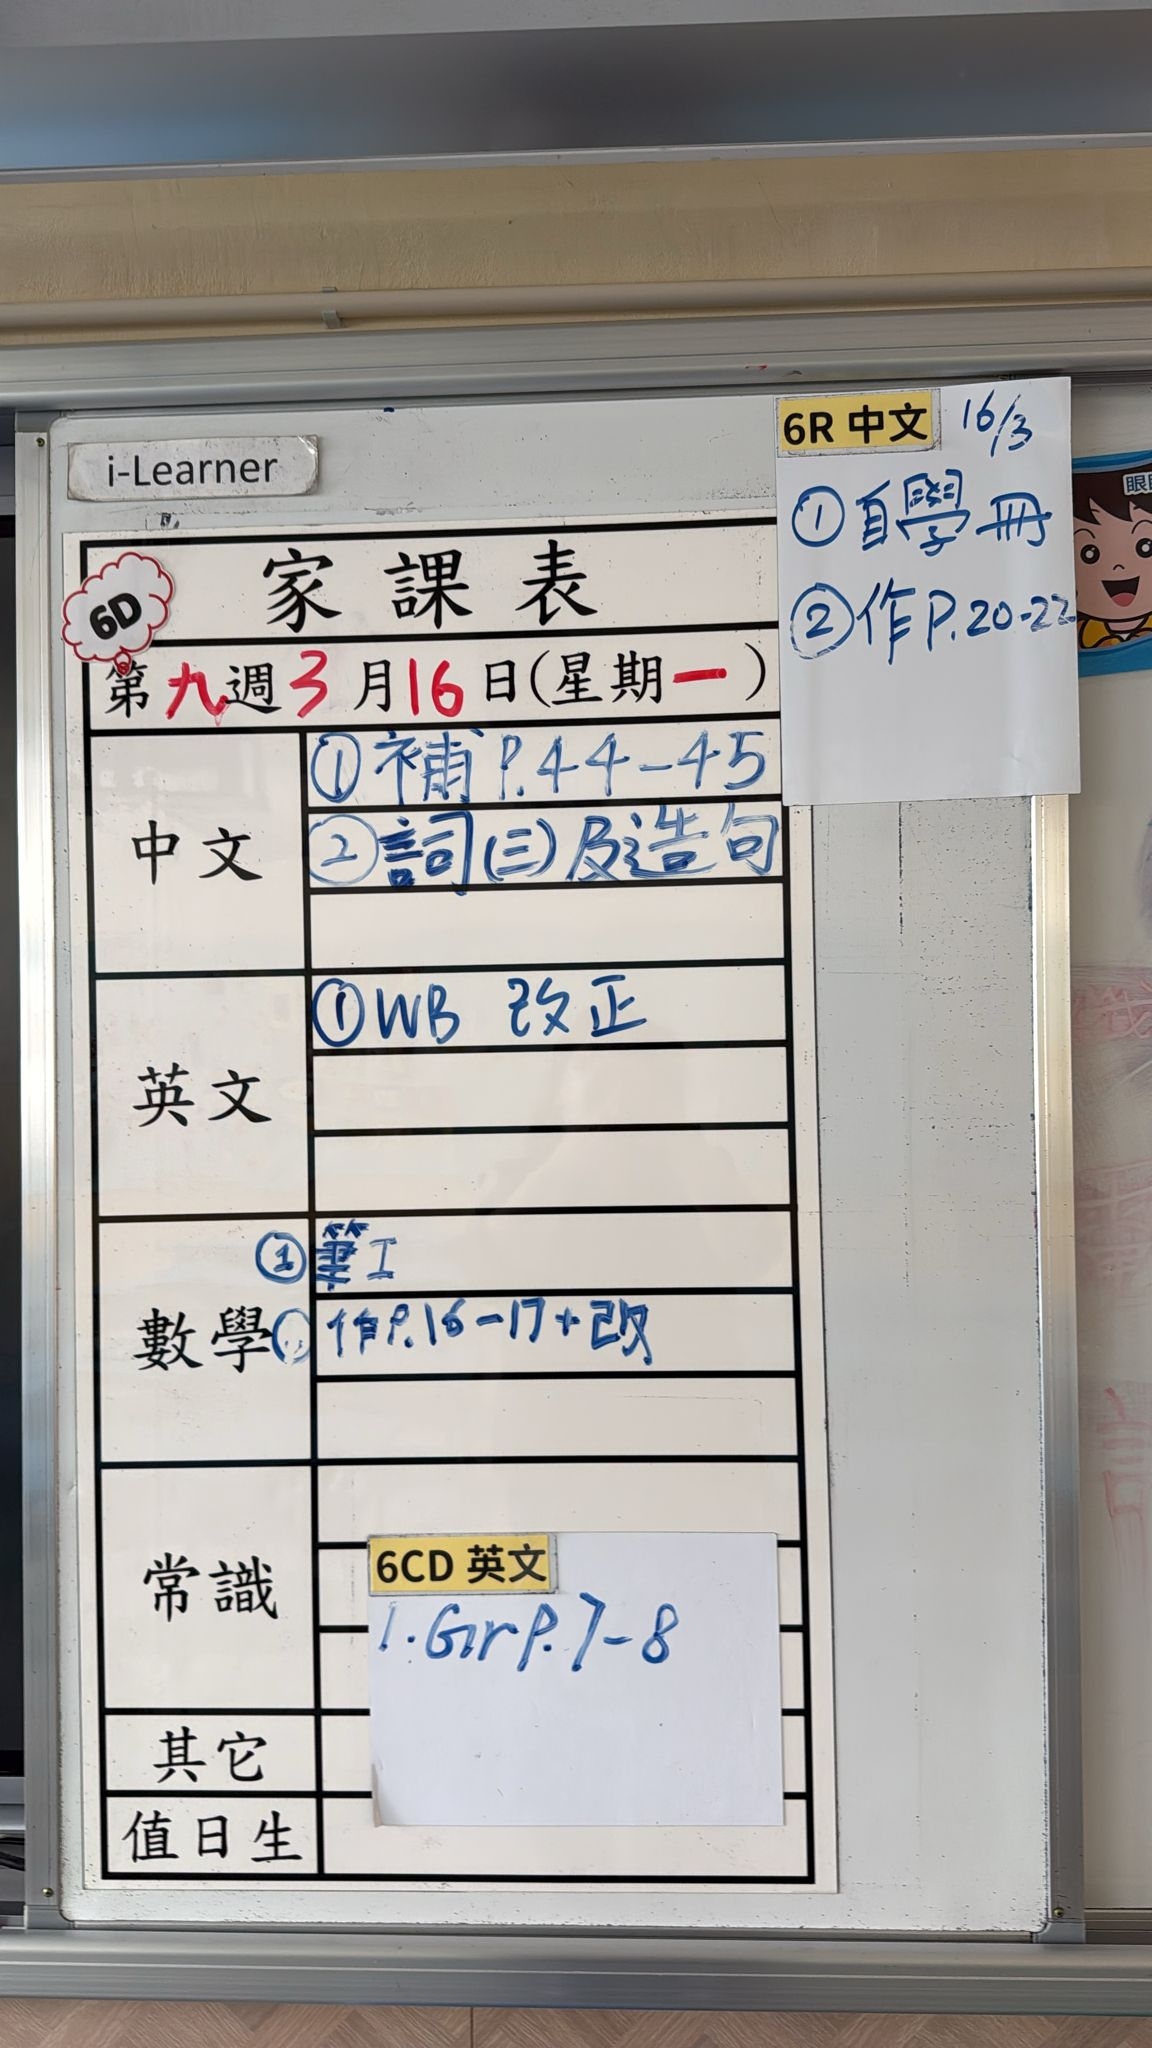 i-Learner
6R 中文 16/3
①自學冊
②作P.20-22
眼
6D
家課表
第九週3月16日(星期一)
中文
①補P.44-45
②詞(三)及造句
英文
①WB 改正
數學
①筆工
作P.16-17+改
常識
6CD 英文
1. Gr P.7-8
其它
值日生